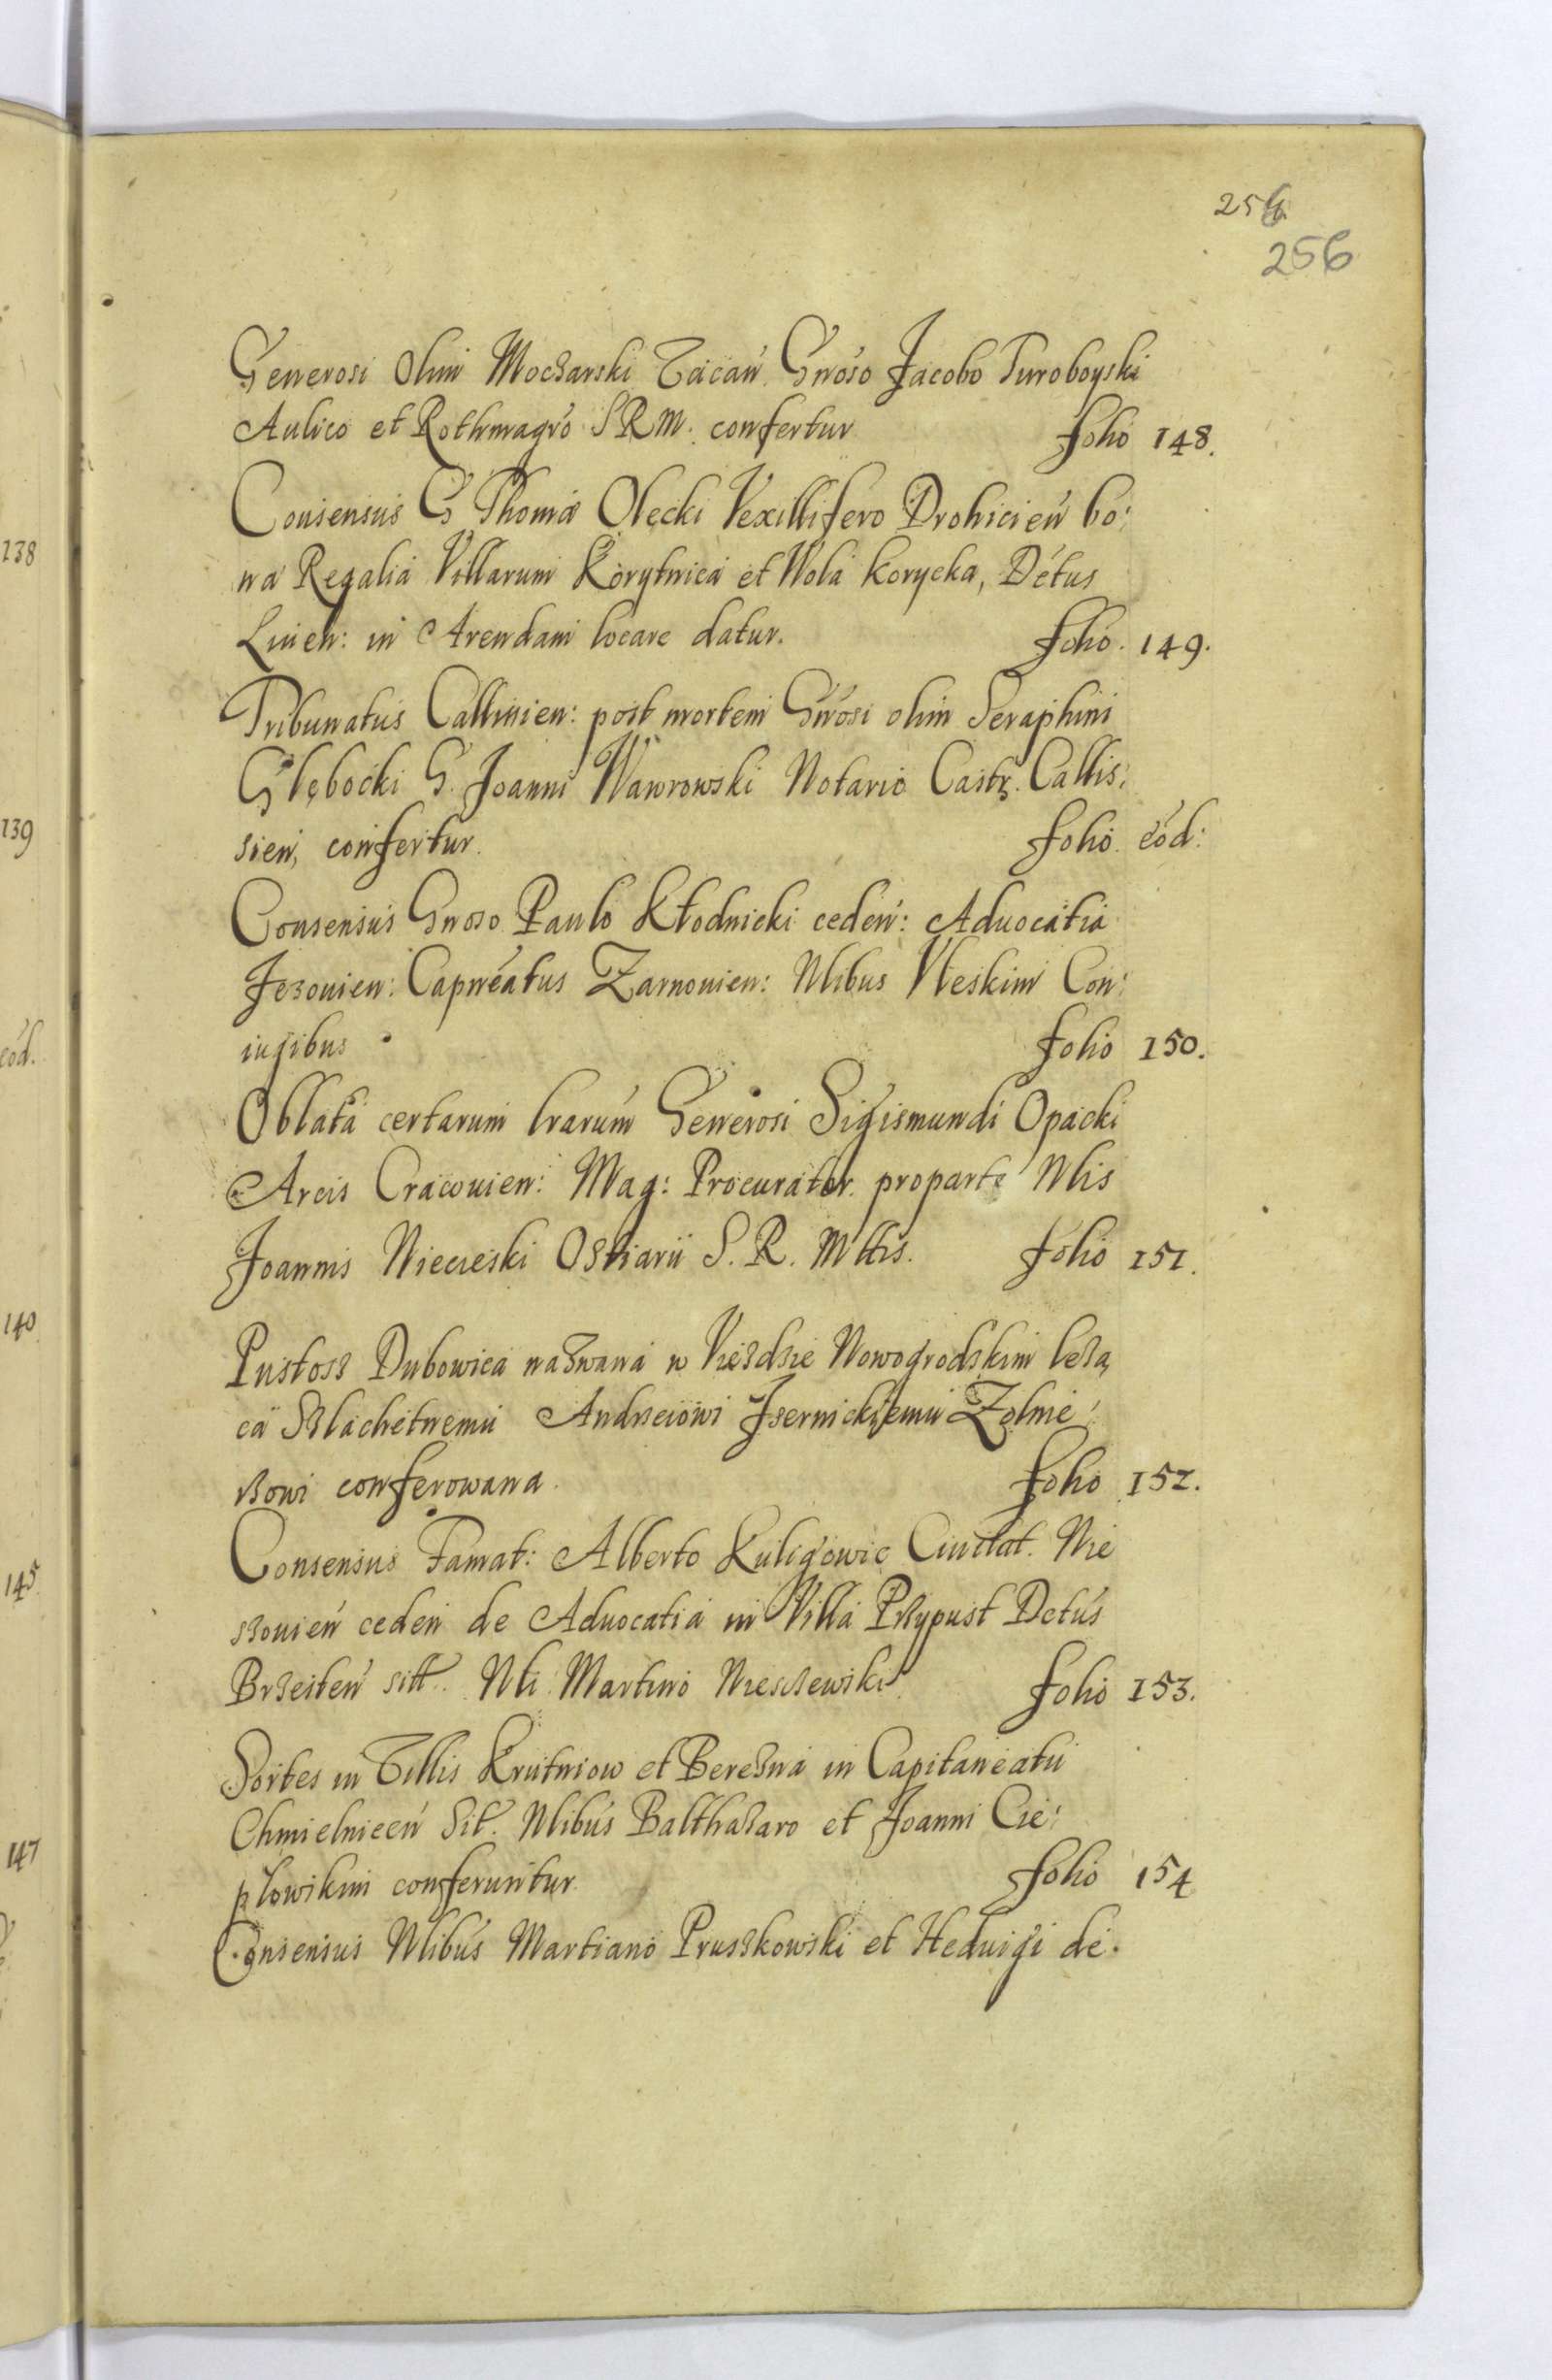 254
256
Generosi olim Moczarski vacań. Gnoso Jacobo Turoboyski
Aulico et Rothmagro SRM. confertur folio 148.
Consensus G Thomæ Olęcki Vexillifero Drohicień bo:
na Regalia Villarum Korytnica et Wola Korycka, Dctus
Liuień: in Arendam locare datur. folio. 149.
Tribunatus Callisień: post mortem Gnosi olim Seraphini
Głębocki G. Joanni Wawrowski Notario Castr. Callis:
sień, confertur. folio. eod:
Consensus Gnoso Paulo Kłodnicki cedeń: Aduocatia
Jezouień: Capneatus Zarnouień: Nlibus Vleskim Con:
iugibus folio 150.
Oblata certarum lrarum Generosi Sigismundi Opacki
Arcis Cracouień: Mag: Procurator. proparte Nlis
Joannis Niecieski Ostiarii S. R. Mttis. folio 151.
Pustosz Dubowica nazwana w Vieżdzie Nowogrodskim leżą,
ca Szlachetnemu Andrzeiowi Jzernickiemu Zołnie:
rzowi conferowana. folio 152.
Consensus Famat: Alberto Kuligowic Ciuitat. Nie
szouień cedeń de Aduocatia in Villa Przypust Dctus
Brzesteń sitt. Nli Martino Nieszewski folio 153.
Sortes in Villis Krutniow et Berezna in Capitaneatu
Chmielniceń Sit. Nlibus Balthazaro et Joanni Cie:
plowikim conferuntur folio 154
Consensus Nlibus Martiano Pruszkowski et Heduigi de.
138
139
eod.
140
145
147